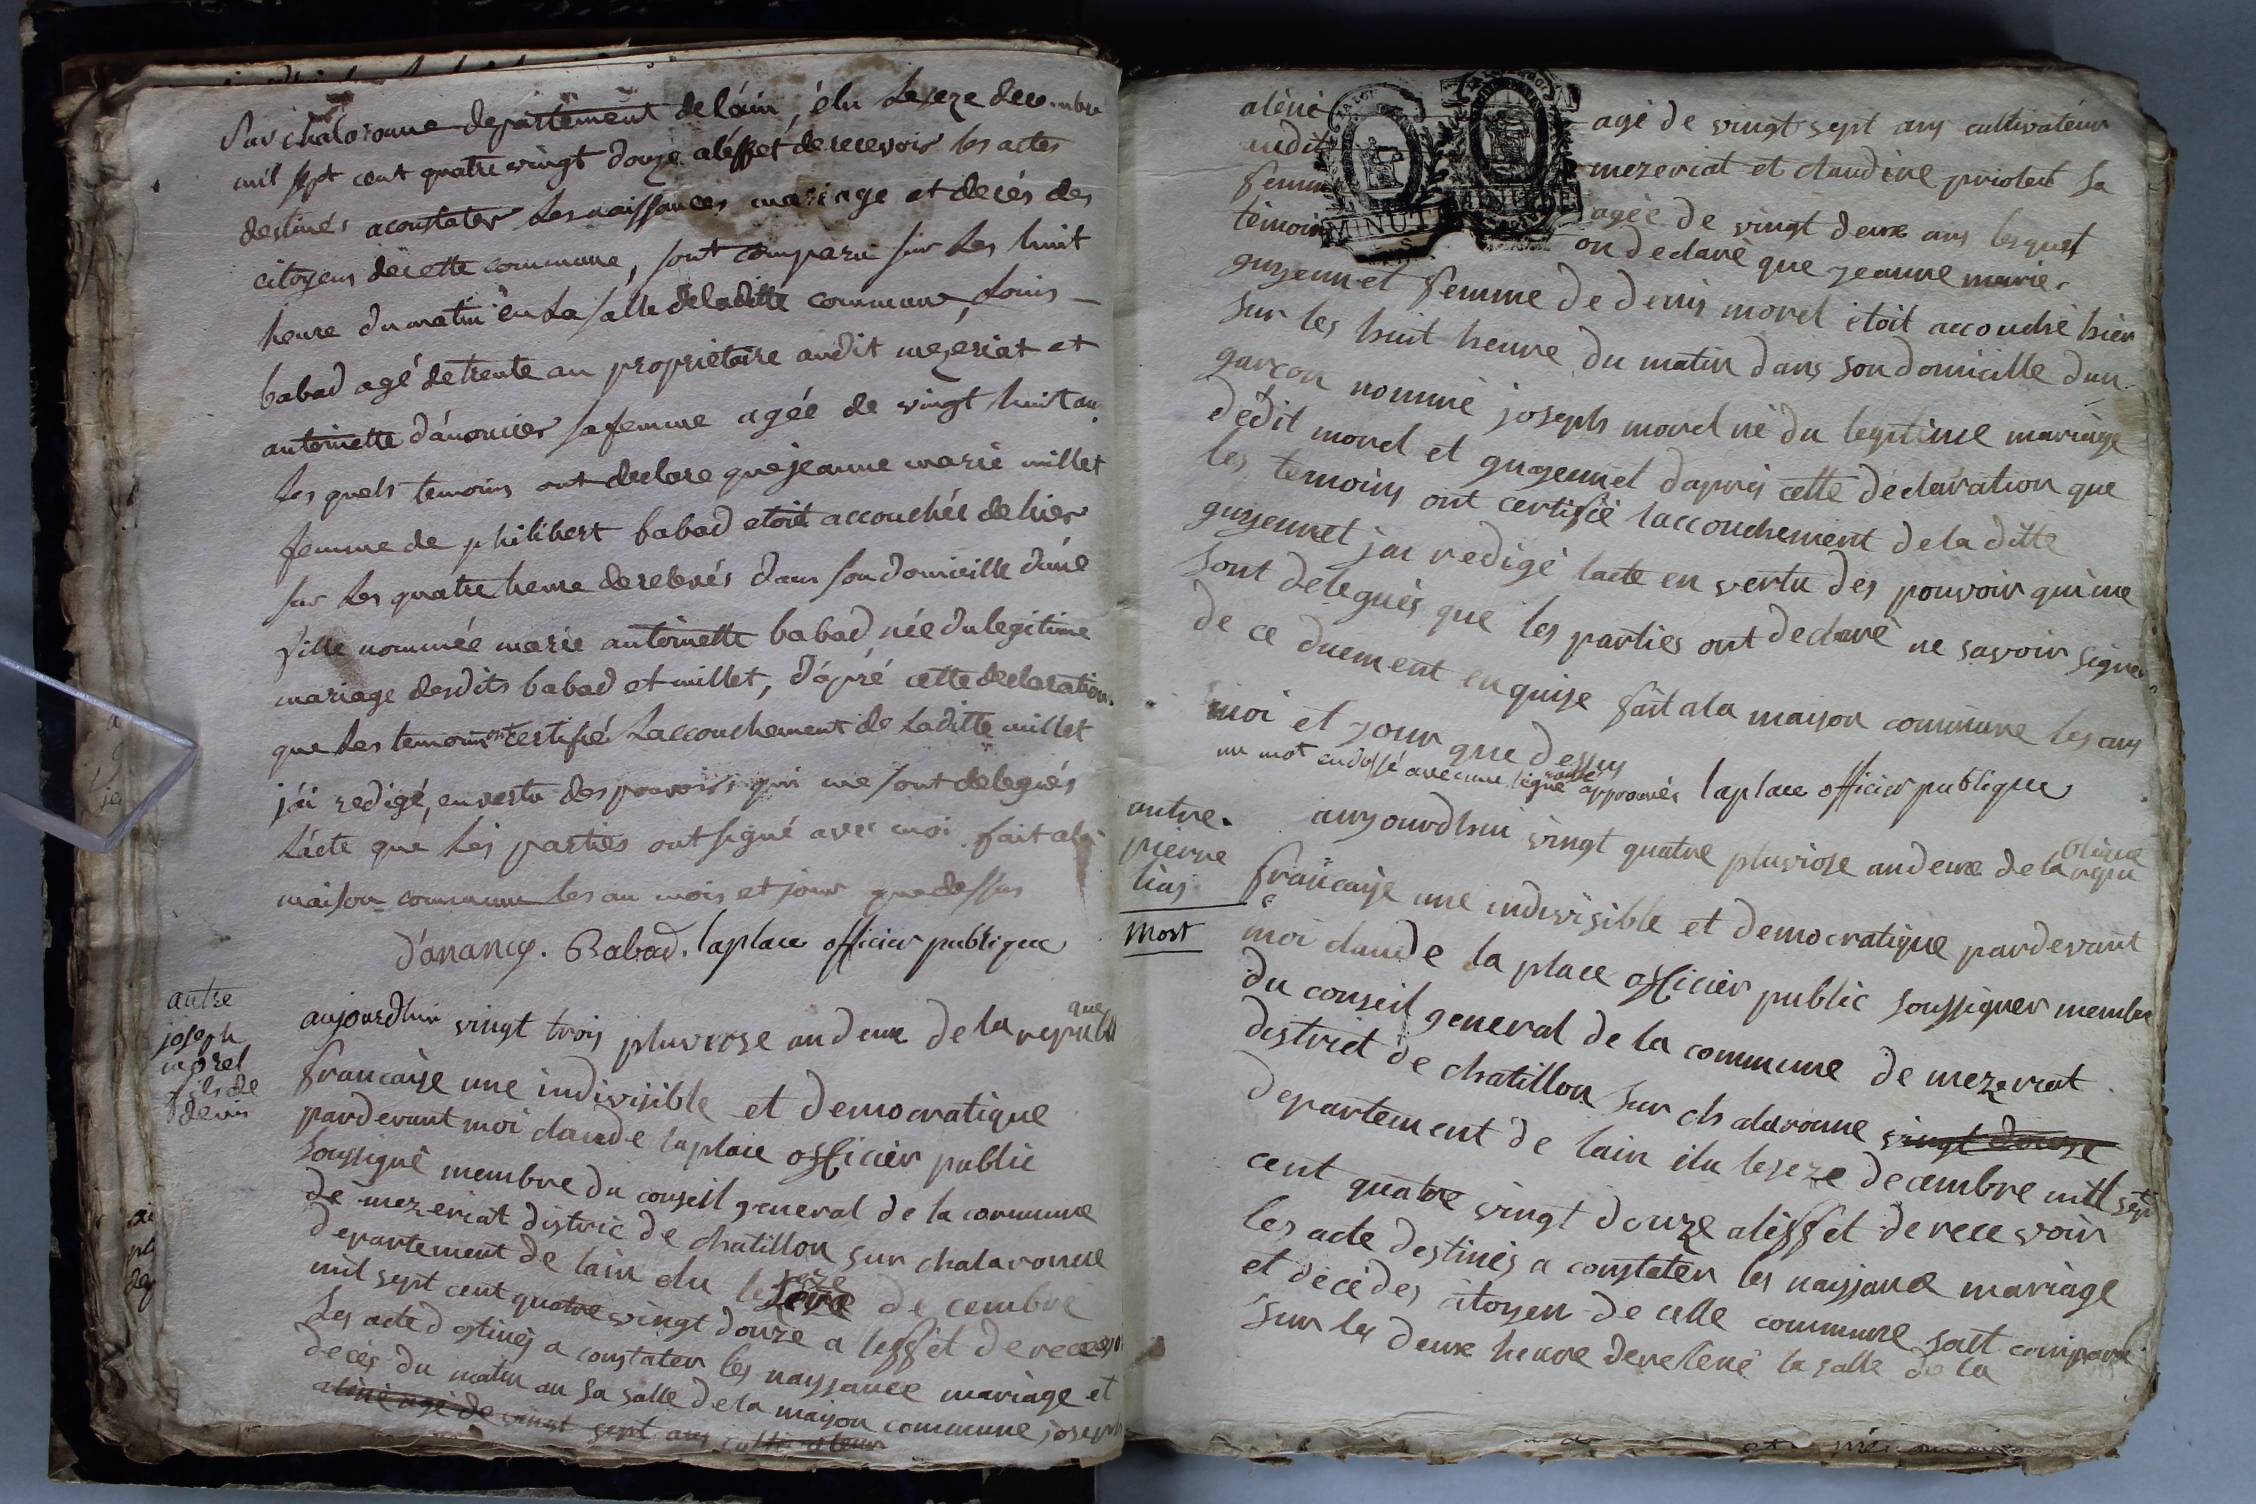 Sur chalaronne departement de láin, élu le seze decembre
mil sept cent quatre vingt douze aléffet de recevoir les actes
destinés a constater les naissances mariage et decés des
citoyens de cette commune, sont comparu sur les huit
heure du matin en la salle de laditte commune, Louis
babad agé de trente an propriétaire audit mezeriat et
antoinette dánancier sa femme agée de vingt huit an
les quels temoins ont declare que jeanne marie millet
femme de philibert babad etoit accouchée de hier
sur les quatre heure de relevés dans son domicille dúne
fille nommée marie antoinette babad née du legitime
mariage desdits babad et millet, dápré cette declaration
que les temoins ont certifié Laccouchement de Laditte millet
jái redigé, en vertu des pouvoirs qui me sont delegués
Lácte que les parties ont signé avec moi fait a la
maison commune les an mois et jour que dessus
d'anancy. Babad. laplace officier publique
autre
joseph
morel
fils de
denis
aujourdhui vingt trois pluviose an deux de la republique
francaise une indivisible et democratique
pardevant moi claude laplace officier public
soussigné membre du conseil general de la commune
de mezeriat distric de chatillon sur chalaronne
departement de lain elu le seze decembre
mil sept cent quatre vingt douze a leffét de recevoir
les acte destinés a constater les naissance mariage et
decés du matin an la salle de la maison commune joseph
aléné agé de vingt sept ans cultivateur
aléné agé de vingt sept ans cultivateur
audit mezeriat et claudine priolet sa
femme agéé de vingt deux ans lesquel
temoin on declaré que jeanne marie
guyennet femme de denis morel étoit accouché hier
sur les huit heure du matin dans son domicille dun
garcon nommé joseph morel né du legitime mariage
dedit morel et guyennet dapres cette déclaration que
les temoins ont certifié laccouchement de la ditte
guyennet jai redigé lacte en vertu des pouvoir qui me
sont delegués que les parties ont declaré ne savoir signer
de ce duement enquise fait a la maison commune les ans
moi et jour que dessus
un mot endossé avec une ligne rayé approuvés laplace officier publique
autre.
pierre
lias
Mort
aujourdhui vingt quatre pluviose an deux de la republique
francaise une indivisible et democratique pardevant
moi claude la place officier public soussigner membre
du conseil general de la commune de mezeriat
district de chatillon sur chalaronne vingt douze
departement de lain élu le seze decembre mill sept
cent quatre vingt douze aléffet de recevoir
les acte destinés a constater les naissance mariage
et décé des citoyen de celle commune sont comparu
sur les deux heure de relené la salle de la
MINUTE MINUTE